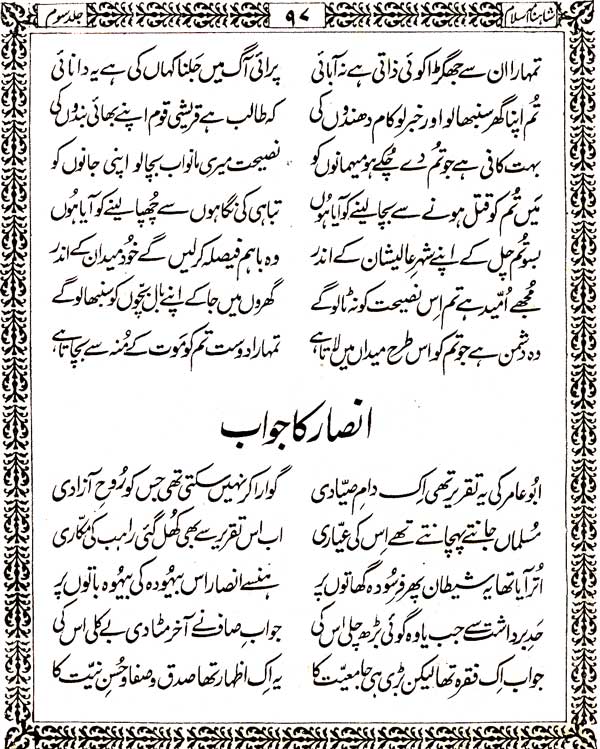 شاہنامۂ اسلام ۹۷ جلد سوم
تمہارا ان سے جھگڑا کوئی ذاتی ہے نہ آبائی پرائی آگ میں جلنا کہاں کی ہے یہ دانائی
تم اپنا گھر سنبھالو اور خبر لو کام دھندوں کی کہ طالب ہے قریشی قوم اپنے بھائی بندوں کی
بہت کافی ہے جو تم دے چکے ہو میہمانوں کو نصیحت میری مانو اب بچا لو اپنی جانوں کو
میں تم کو قتل ہونے سے بچا لینے کو آیا ہوں تباہی کی نگاہوں سے چھپا لینے کو آیا ہوں
بسو تم چل کے اپنے شہر عالیشان کے اندر وہ باہم فیصلہ کر لیں گے خود میدان کے اندر
مجھے امید ہے تم اس نصیحت کو نہ ٹالو گے گھروں میں جا کے اپنے بال بچوں کو سنبھالو گے
وہ دشمن ہے جو تم کو اس طرح میداں میں لاتا ہے تمہارا دوست تم کو موت کے منہ سے بچاتا ہے
انصار کا جواب
ابو عامر کی یہ تقریر تھی اک دامِ صیادی گوارا کر نہیں سکتی تھی جس کو روحِ آزادی
مسلماں جانتے پہچانتے تھے اس کی عیاری اب اس تقریر سے بھی کھل گئی راہب کی مکاری
اتر آیا تھا یہ شیطان پھر فرسودہ گھاتوں پر ہنسے انصار اس بیہودہ کی بیہودہ باتوں پر
حدِ برداشت سے جب یاوہ گوئی بڑھ چلی اس کی جوابِ صاف نے آخر مٹا دی بے کلی اس کی
جواب اک فقرہ تھا لیکن بڑی ہی جامعیت کا یہ اک اظہار تھا صدق و صفا و حسنِ نیت کا